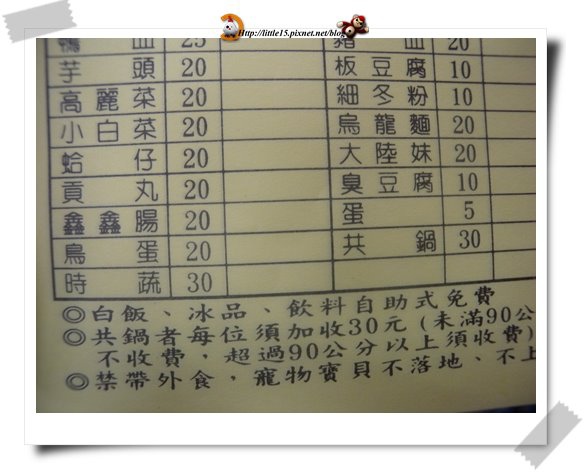 Http://little15.pixnet.net/blog
鴨 血 25 豬 血 20
芋 頭 20 板豆腐 10
高麗菜 20 細冬粉 10
小白菜 20 烏龍麵 20
蛤 仔 20 大陸妹 20
貢 丸 20 臭豆腐 10
鑫鑫腸 20 蛋 5
鳥 蛋 20 共 鍋 30
時 蔬 30
◎白飯、冰品、飲料自助式免費
◎共鍋者每位須加收30元(未滿90公
不收費,超過90公分以上須收費)
◎禁帶外食,寵物寶貝不落地、不上